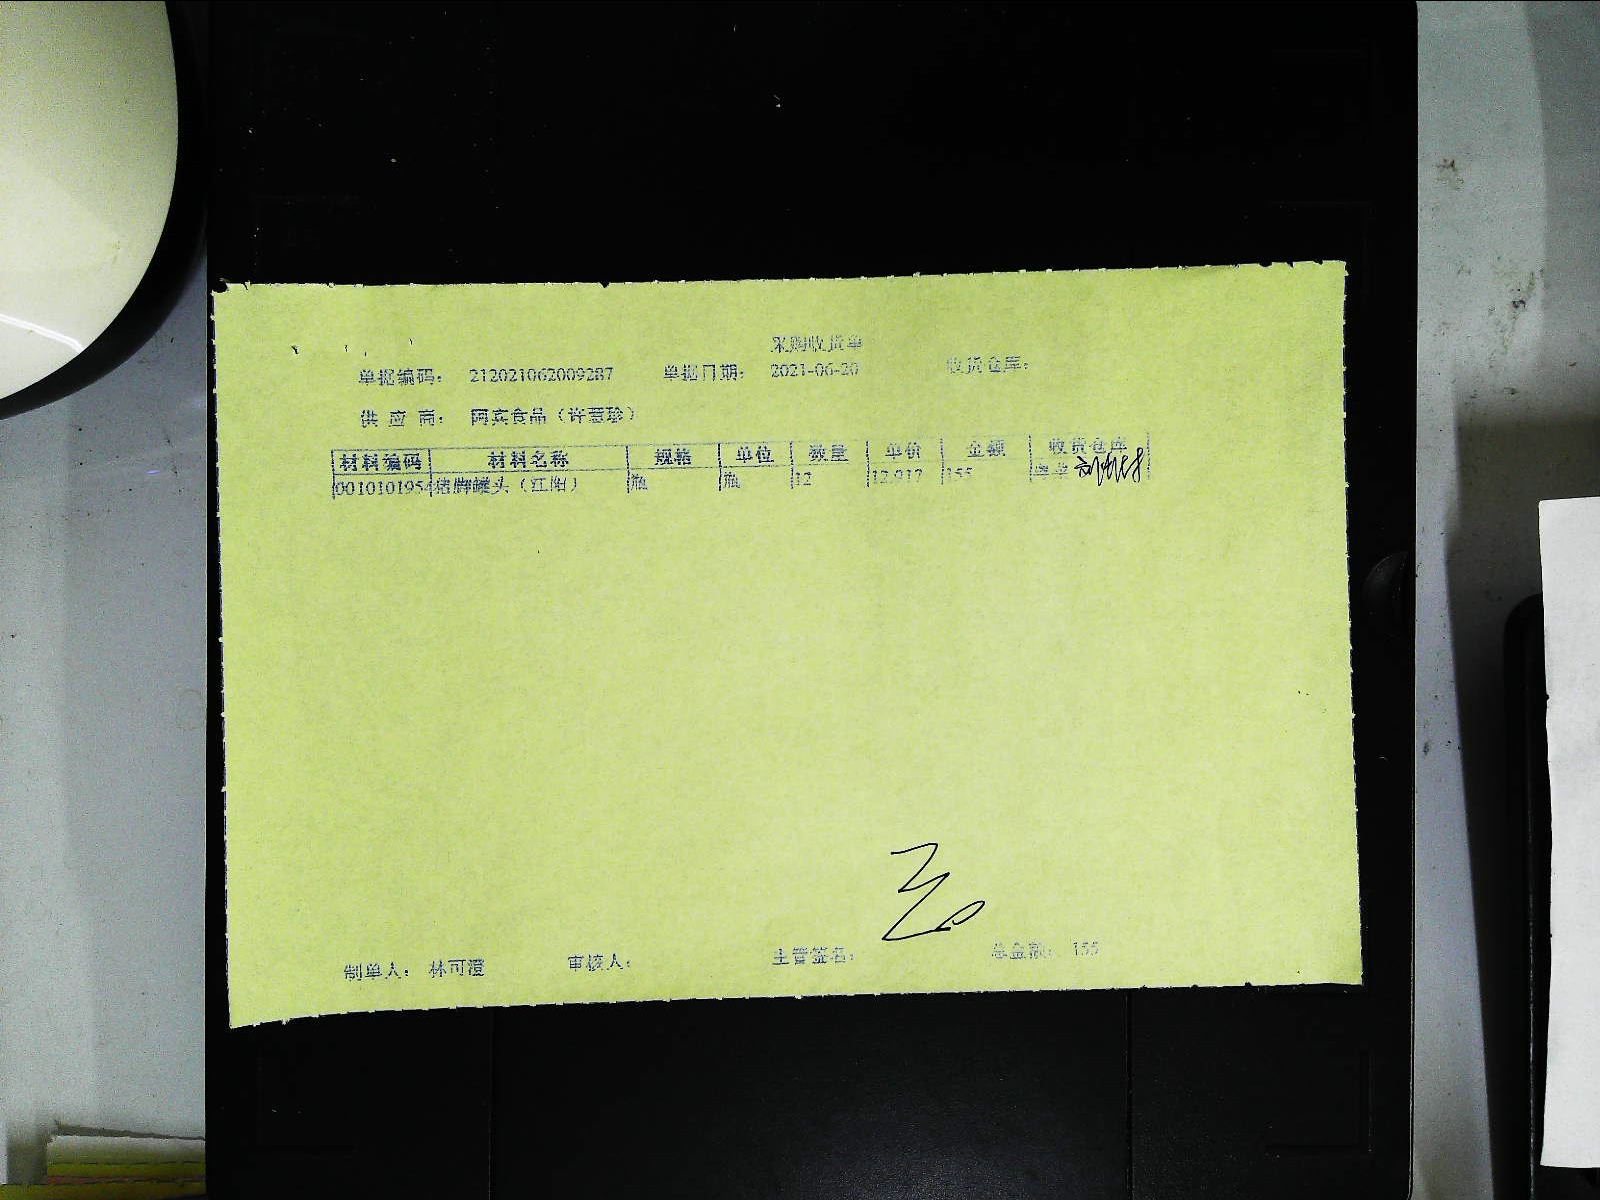 采购收货单
单据编码： 212021062009287 单据日期： 2021-06-20 收货仓库：
供 应 商： 闽宾食品（许慧珍）
材料编码 材料名称 规格 单位 数量 单价 金额 收货仓库
0010101954 猪脚罐头（江阳） 瓶 瓶 12 12.917 155
制单人： 林可澄 审核人： 主管签名： 总金额： 155